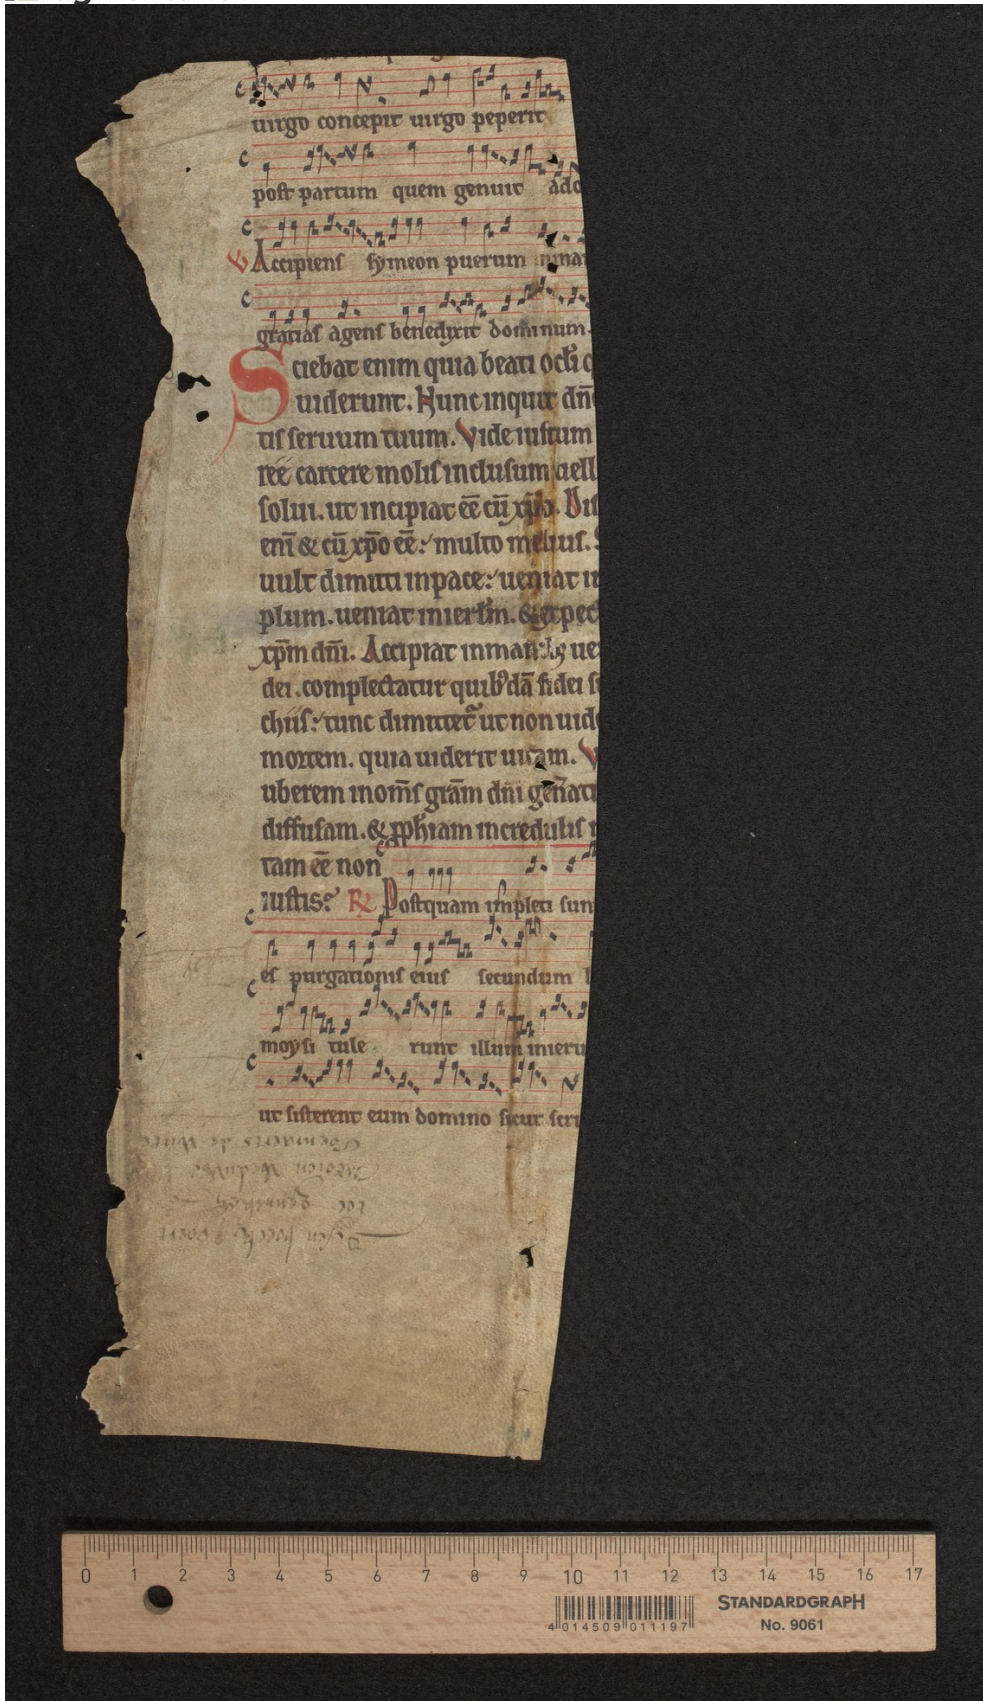 uirgo concepit uirgo peperit
post partum quem genuit ado
Accipiens symeon puerum inma
gratias agens benedixit dominum.
Sciebat enim quia beati ocłi q
uiderunt. Hunc inquit dn̄
tis seruum tuum. Vide iustum
reē carcere molis inclusum uell
solui. ut incipiat eē cū xp̄o. Dis
enī & cū xp̄o eē: multo melius.
uult dimitti inpace: ueniat in
plum. ueniat inierłm. & expec
xp̄m dn̄i. Accipiat inmanibꝫ ue
dei. complectatur quibꝰdā fidei
chiis: tunc dimittet᷑ ut non uid
mortem. quia uiderit uitam. V
uberem inom̄s grām dn̄i gen̄ati
diffusam. & p̱phiam incredulis
tam eē non
iustis? ℟ Postquam impleti sun
es purgationis eius secundum l
moysi tulerunt illum inieru
ut sisterent eum domino sicut scri
0 1 2 3 4 5 6 7 8 9 10 11 12 13 14 15 16 17
STANDARDGRAPH
No. 9061
4 014509 011197